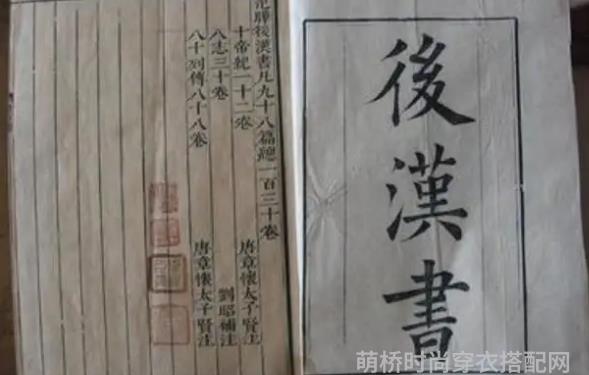 後漢書
范曄後漢書凡九十八篇總一百三十卷
十帝紀一十二卷 唐章懷太子賢注
八志三十卷 劉昭補注
八十列傳八十八卷 唐章懷太子賢注
萌桥时尚穿衣搭配网